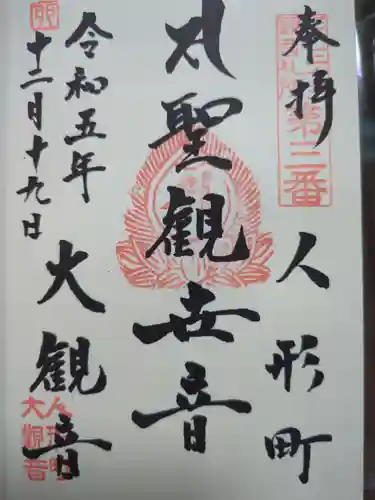 奉拝
第三番
人形町
聖観世音
大観音
人形町
大観音
令和五年
十二月十九日